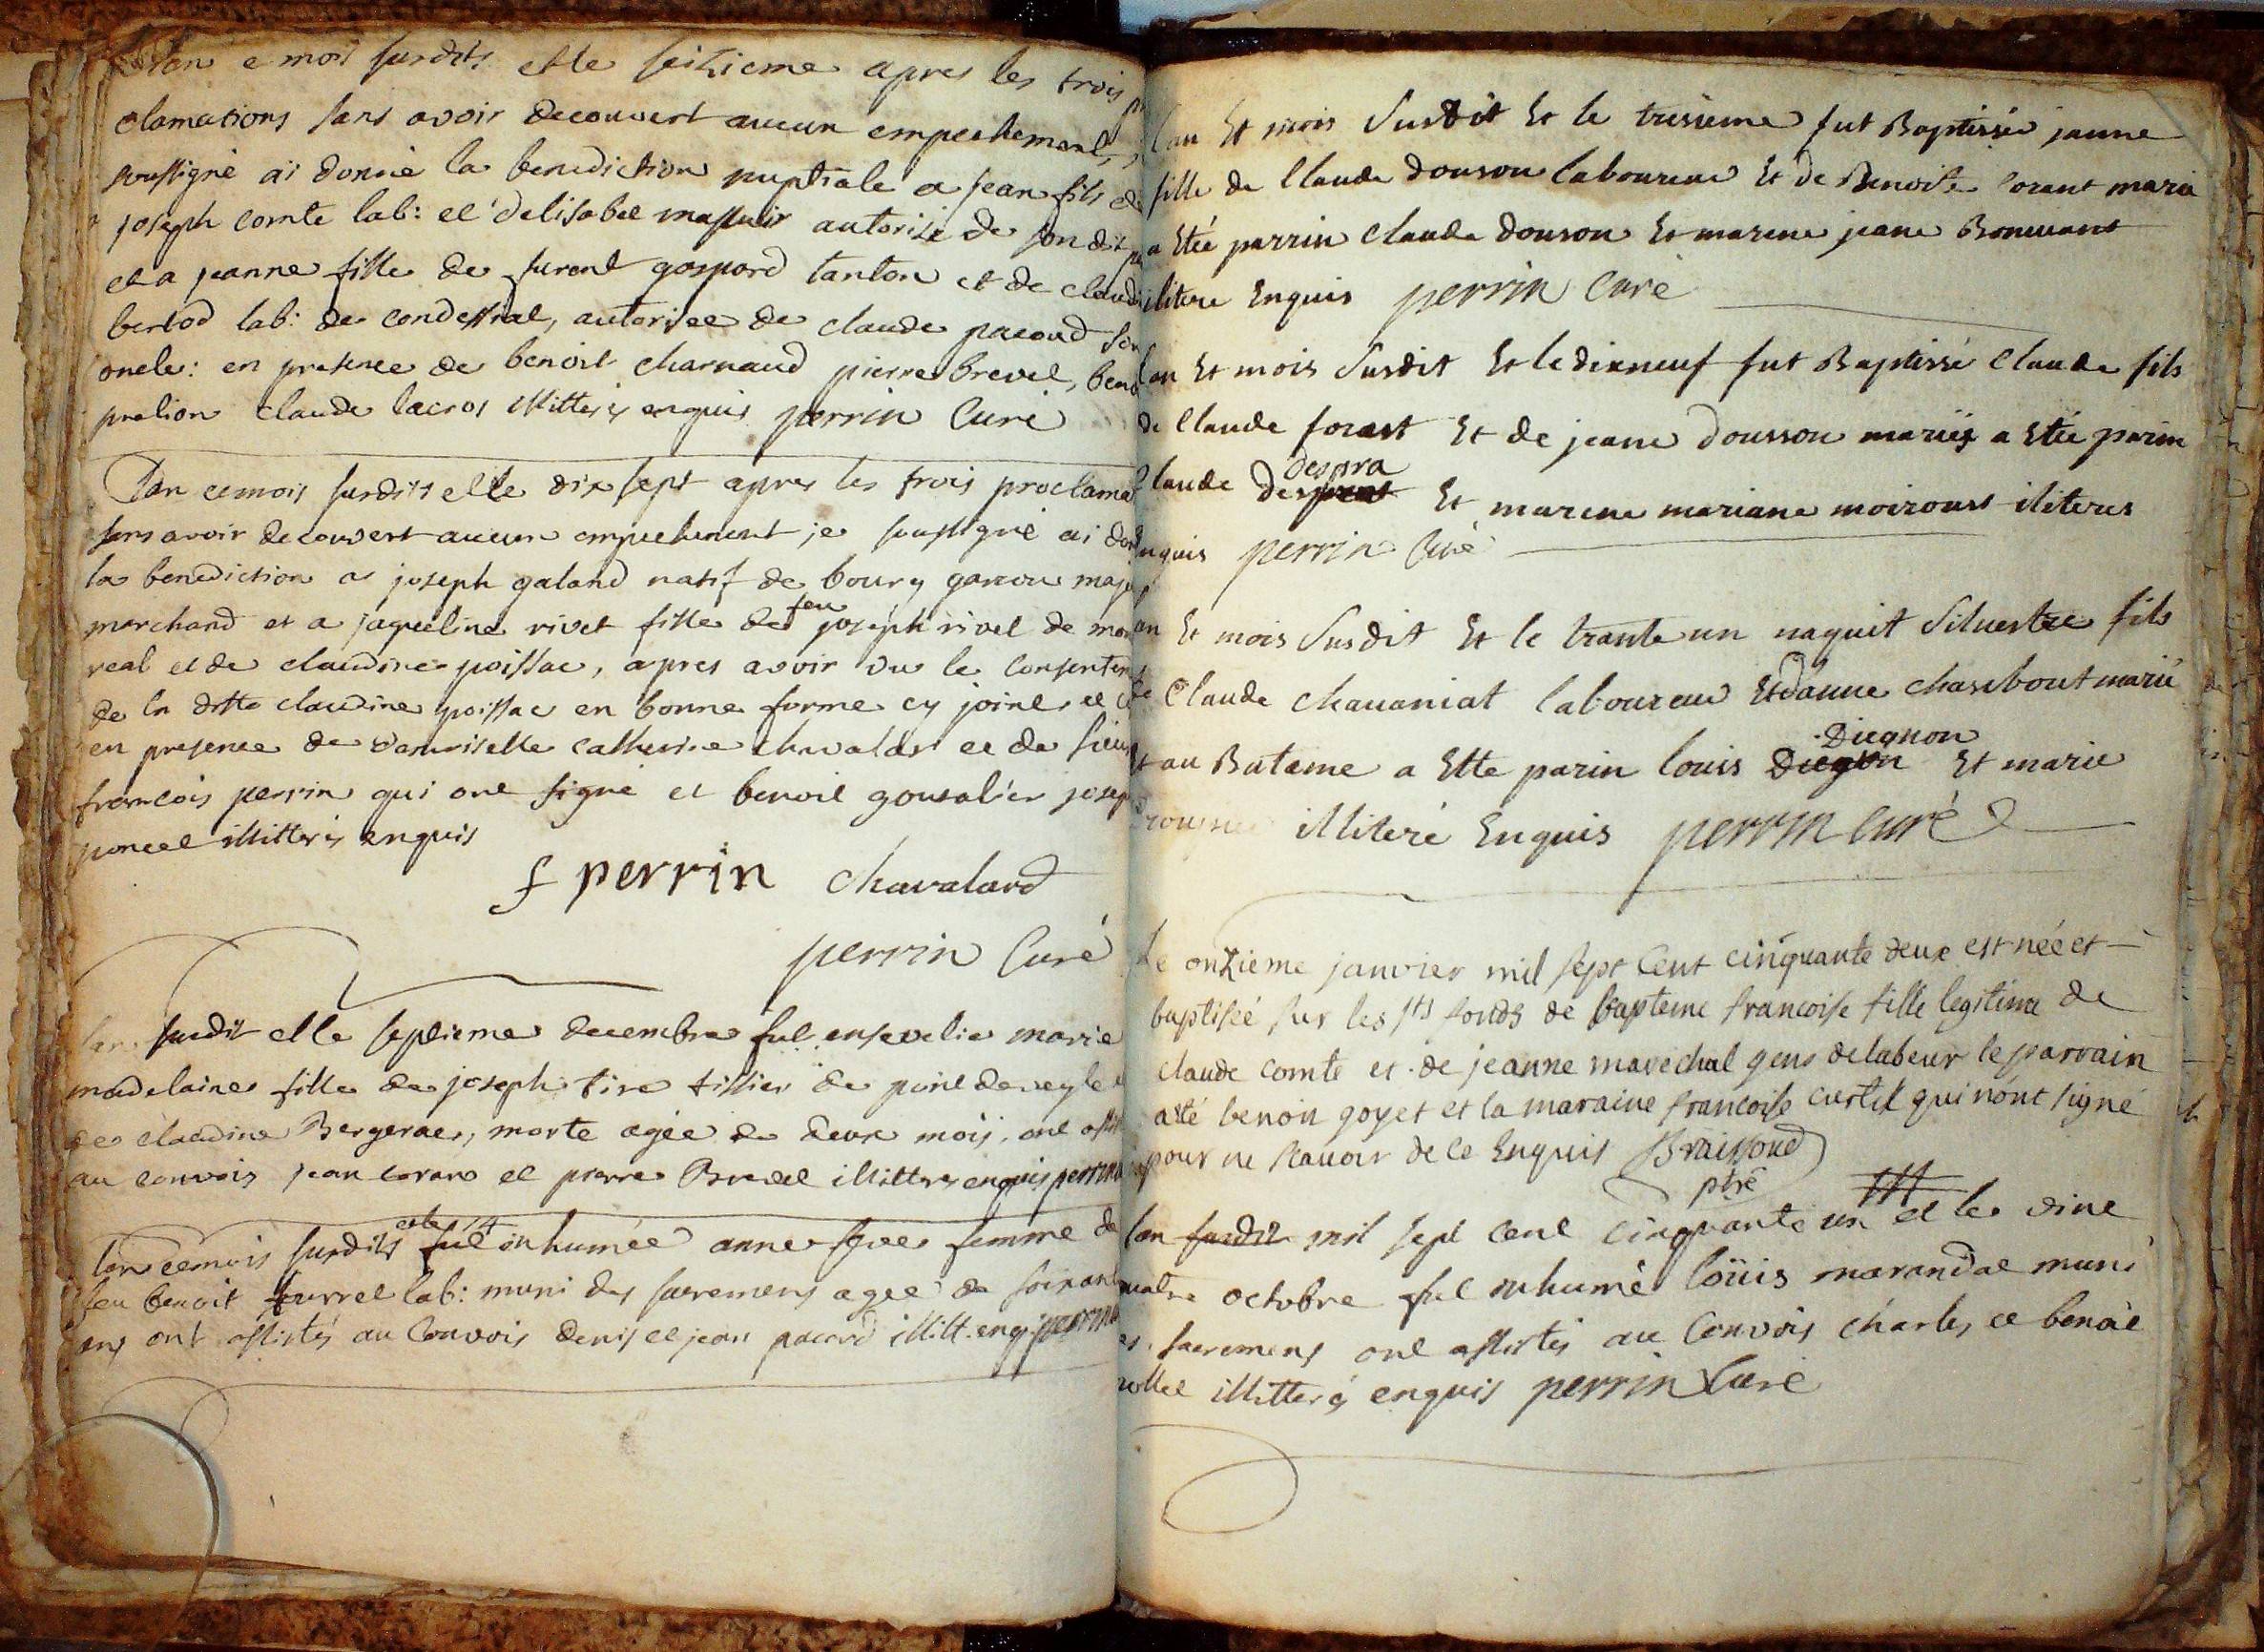 lan e mois susdits et le seizieme apres les trois pr
clamations sans avoir decouvert aucun empechement,
soussigné ai donné la benediction nuptiale a jean fils de
joseph comte lab: et d'elisabet autorisé de son dit pe
et a jeanne fille de furent gaspard tanton et de claudi
bertod lab: de condessial, autorisee de claude pacoud son
oncle: en presence de benoit charnaud pierre brevet, beno
pralion claude lacros illitterés enquis perrin Curé
Lan e mois susdits et le dix sept apres les trois proclama
sans avoir decouvert aucun empechement je soussigné ai don
la benediction a joseph galand natif de bourg garcon maje
marchand et a jaqueline rivet fille de feu joseph rivet de mon
real et de claudine poissac, apres avoir vu le consentem
de la ditte claudine poissac en bonne forme cy joint, et ce
en presence de demoiselle catherine chavalard et de sieur
francois perrin qui ont signé et benoit gonsalier josep
poncet illitterés enquis
f perrin chavalard
perrin Curé
lan susdit et le septieme decembre fut ensevelie marie
madelaine fille de joseph tire tissier de pont de veyle e
de claudine Bergerae, morte agée de deux mois, ont assist
au convois jean coran et pierre Brevet illitteres enquis perrin
lan e mois susdits et le 14 fut inhumée anne femme de
feu benoit furret lab: muni des sacremens agee de soixante
ans ont assistés au Convois denis et jean pacoud illitt. enq. perrin
lan Et mois Susdit Et le tresieme fut Baptissée jeanne
fille de Claude douson laboureur Et de Benoite corant marie
a Etée parrin Claude douson Et marene jeane Bonuant
illitere Enquis perrin Curé
lan Et mois Susdit Et le dixneuf fut Baptissé Claude fils
de Claude forast Et de jeane dousson mariés a Etée parin
Claude despra Et marene mariane moiroust iliteres
enquis perrin Curé
lan Et mois Susdit Et le trante un naquit Siluestre fils
de Claude chauaniat laboureur Et danne chasibout marié
Et au Bateme a Ette parin louis Diegnon Et marie
illiteré Enquis perrin Curé
Le onzieme janvier mil sept Cent cinquante deux est née et
baptisée sur les sts fonds de bapteme francoise fille legitime de
claude comte et de jeanne marechal gens de labeur le parrain
a été benoit goyet et la maraine francoise curtil qui n'ont signé
pour ne scauoir de ce Enquis Braissoud
ptre
lan susdit mil sept cent cinquante un et le vint
quatre octobre fut inhumé loüis marandat muni
des sacremens ont assistés au Convois charles et benoit
illitterés enquis perrin Curé